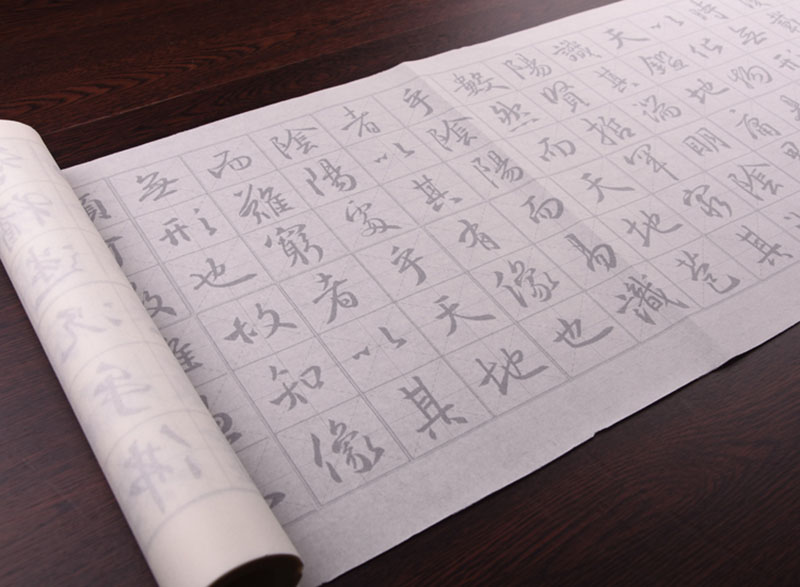 時無形
以化物是
天鑑地庸
識其端明陰
陽賢哲罕窮其
數然而天地苞
乎陰陽而易識
者以其有像也
陰陽處乎天地
而難窮者以其
無形也故知像